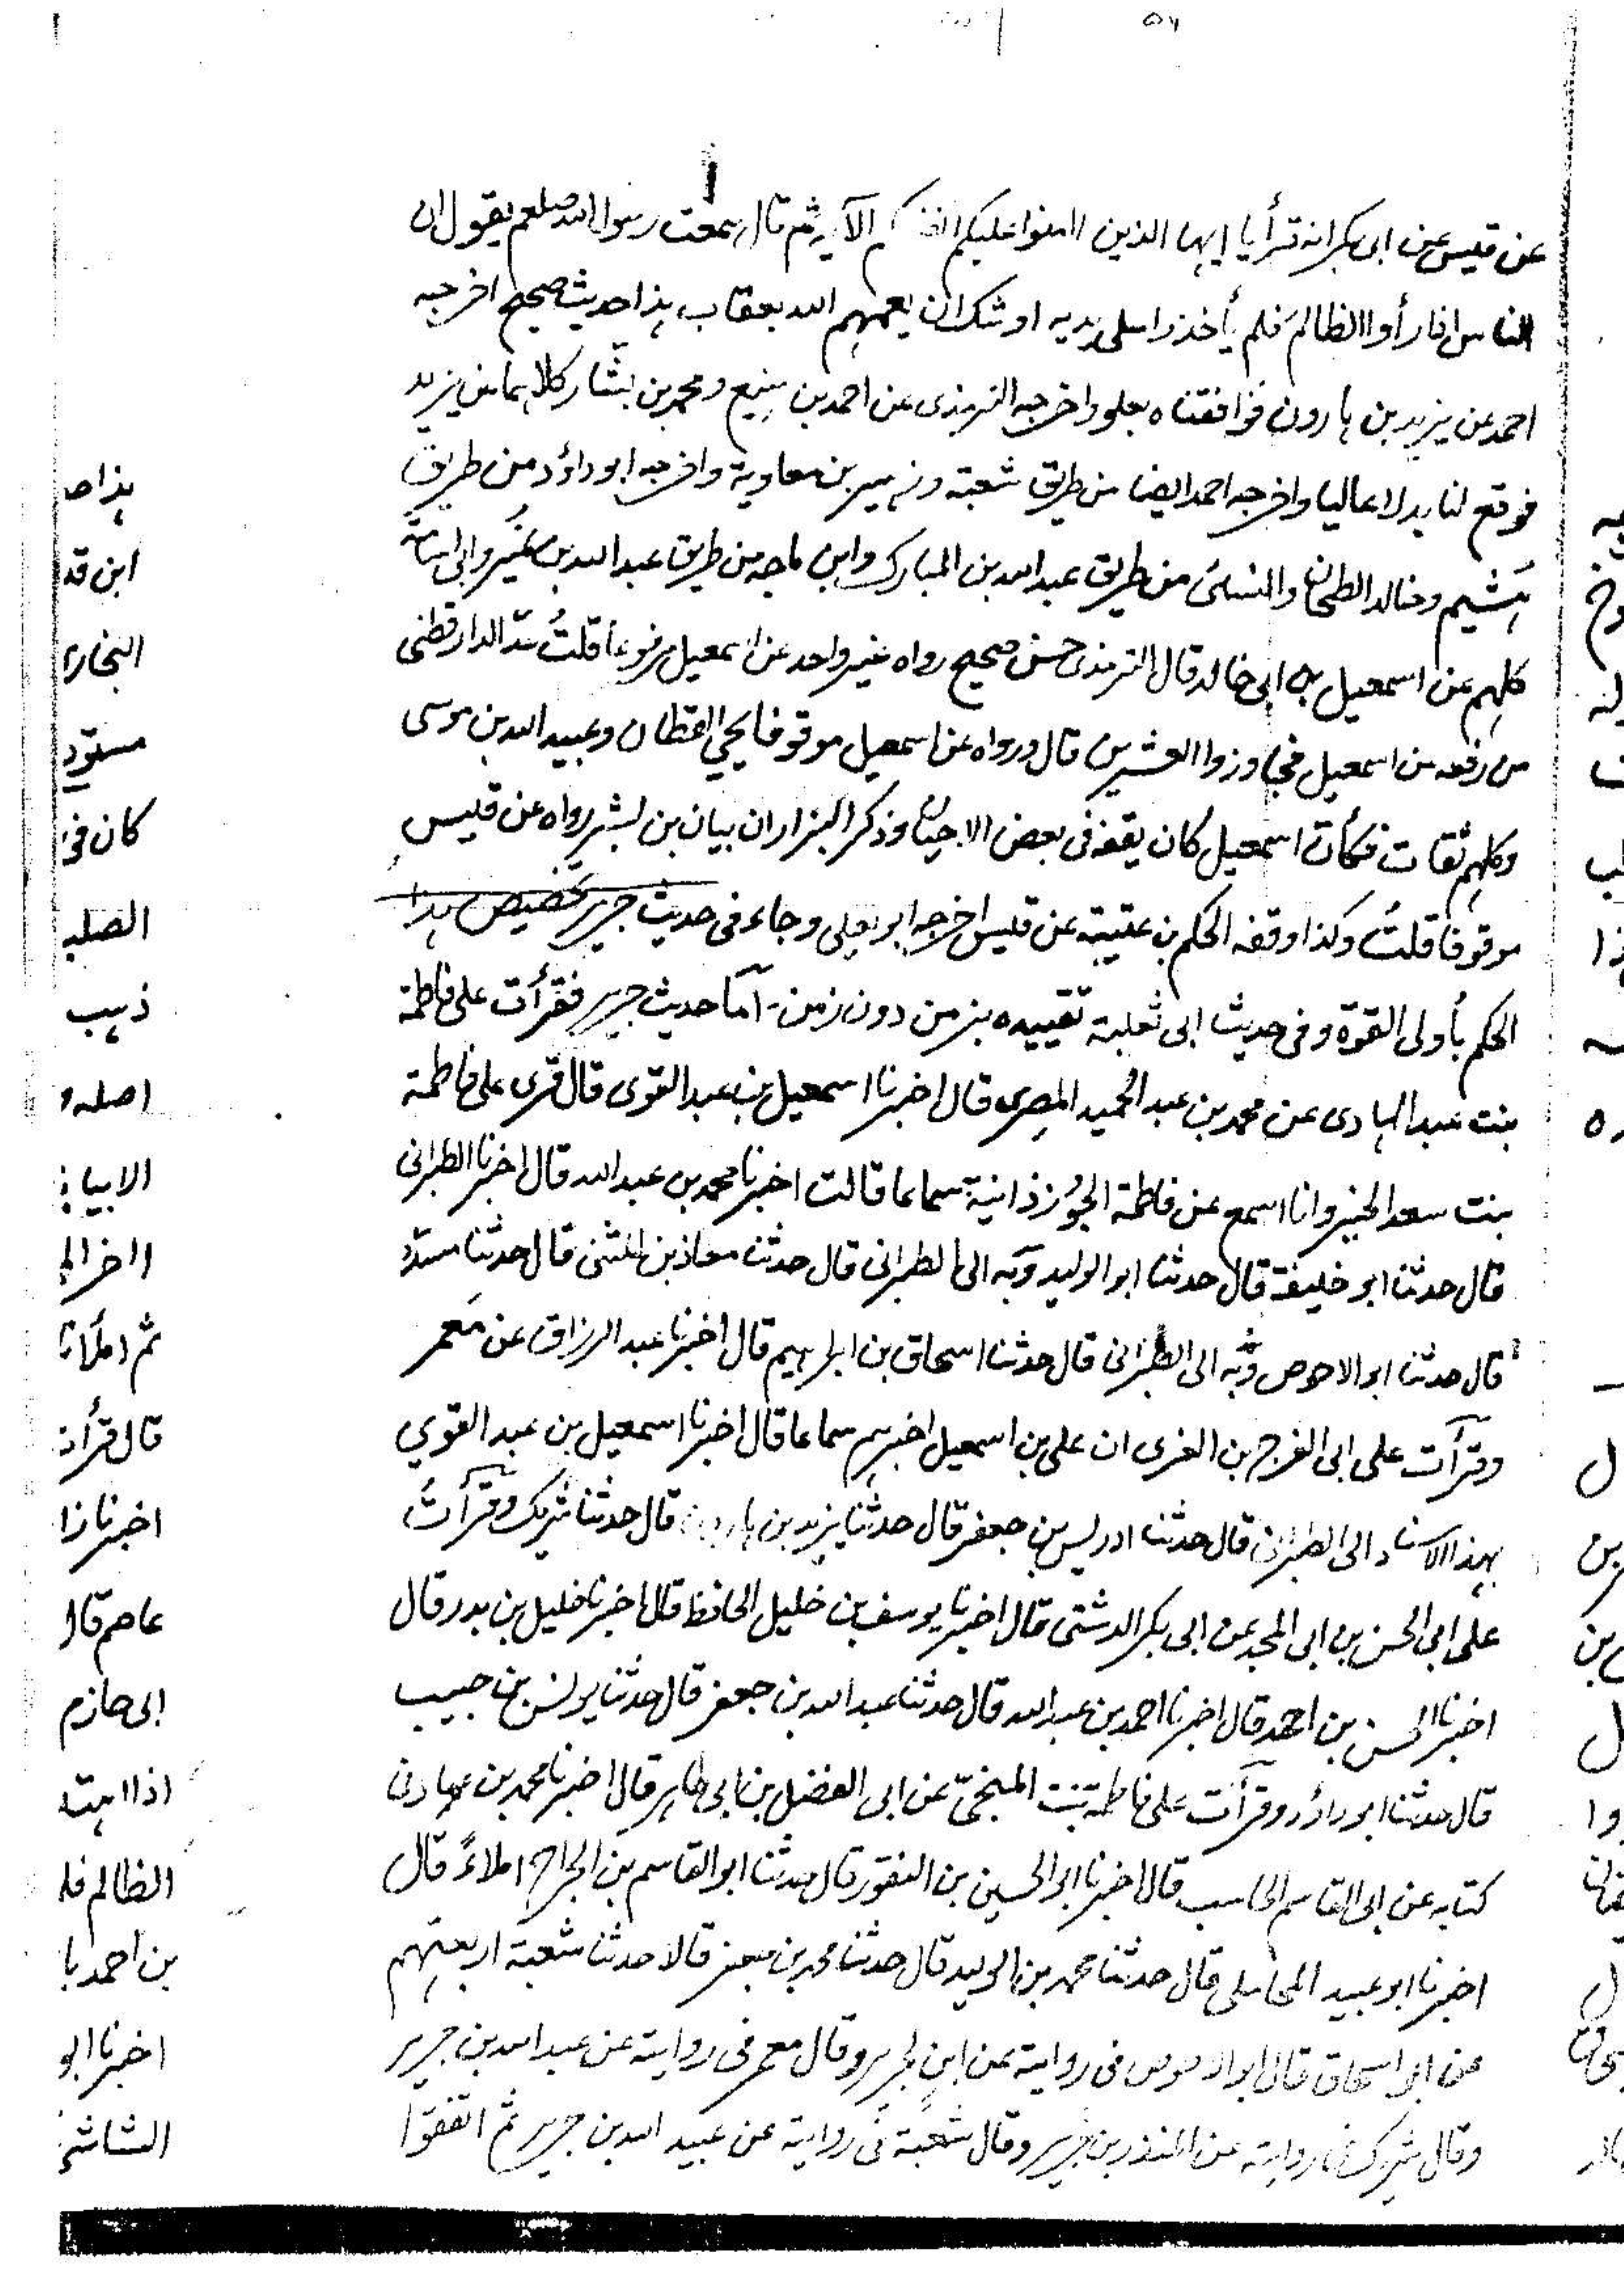 عن قيس عن ابى بكر انه قرأ يا ايها الذين امنوا عليكم انفسكم الآية ثم قال سمعت رسول الله صلعم يقول ان
الناس اذا رأوا الظالم فلم يأخذوا على يديه اوشك ان يعمهم الله بعقاب هذا حديث صحيح اخرجه
احمد عن يزيد بن هارون فوافقناه بعلو واخرجه الترمذى عن احمد بن منيع ومحمد بن بشّار كلاهما عن يزيد
فوقع لنا بدلا عاليا واخرجه احمد ايضا من طريق شعبة وزهير بن معاوية واخرجه ابو داؤد من طريق
هُشيم وخالد الطحان والنسائى من طريق عبد الله بن المبارك وابن ماجه من طريق عبد الله بن نُمَير وابى اسامة
كلهم عن اسمعيل بن ابى خالد قال الترمذى حسن صحيح رواه غير واحد عن اسمعيل مرفوعا قلتُ عدّ الدارقطنى
من رفعه عن اسمعيل فجاوزوا العشرين قال ورواه عن اسمعيل موقوفا يحيى القطان وعبيد الله بن موسى
وكلهم ثقات فكأن اسمعيل كان يقفه فى بعض الاحيان وذكر البزار ان بيان بن بشر رواه عن قيس
موقوفا قلتُ وكذا وقفه الحكم بن عتيبة عن قيس اخرجه ابو يعلى وجاء فى حديث جرير تخصيص هذا
الحكم بأولى القوة وفى حديث ابى ثعلبة تقييده بزمن دون زمن۔ اما حديث جرير فقرأت على فاطمة
بنت عبد الهادى عن محمد بن عبد الحميد المصرى قال اخبرنا اسمعيل بن عبد القوى قال قرى على فاطمة
بنت سعد الخير وانا اسمع عن فاطمة الجُوزذانية سماعا قالت اخبرنا محمد بن عبد الله قال اخبرنا الطبرانى
قال حدثنا ابو خليفة قال حدثنا ابو الوليد وبه الى الطبرانى قال حدثنا معاذ بن المثنى قال حدثنا مسدّد
قال حدثنا ابو الاحوص وبه الى الطبرانى قال حدثنا اسحاق بن ابراهيم قال اخبرنا عبد الرزاق عن معمر
وقرأت على ابى الفرج بن الغزى ان على بن اسمعيل اخبرهم سماعا قال اخبرنا اسمعيل بن عبد القوي
بهذا الاسناد الى الطبرانى قال حدثنا ادريس بن جعفر قال حدثنا يزيد بن هارون قال حدثنا شريك وقرأتُ
على ابى الحسن بن ابى المجد عن ابى بكر الدشتى قال اخبرنا يوسف بن خليل الحافظ قال اخبرنا خليل بن بدر قال
اخبرنا الحسن بن احمد قال اخبرنا احمد بن عبد الله قال حدثنا عبد الله بن جعفر قال حدثنا يونس بن حبيب
قال حدثنا ابو داؤد وقرأت على فاطمة بنت المنجىّ عن ابى الفضل بن ابى طاهر قال اخبرنا محمد بن
كتابه عن ابى القاسم الحاسب قال اخبرنا ابو الحسين بن النقور قال حدثنا ابو القاسم بن الجراح املاءً قال
اخبرنا ابو عبيد المحاملى قال حدثنا محمد بن الوليد قال حدثنا محمد بن جعفر قالا حدثنا شعبة اربعتهم
عن ابى اسحاق قال ابو الاحوص فى روايته عن ابن جرير وقال معمر فى روايته عن عبد الله بن جرير
وقال شريك فى روايته عن المنذر بن جرير وقال شعبة فى روايته عن عبيد الله بن جرير ثم اتفقوا
ابن قد
كان فى
ذهب
قال قرأت
عاصم قال
ابى حازم
بن احمد با
اخبرنا ابو